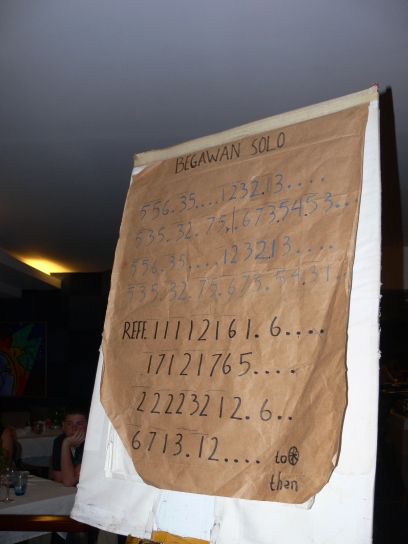 BEGAWAN SOLO
556.35....1232.13....
535.32.75.1.673.54.53...
556.35....1232.13....
535.32.75.675.54.31..
REFF. 11112161.6....
17121765....
22223212.6..
6713.12.... to
then